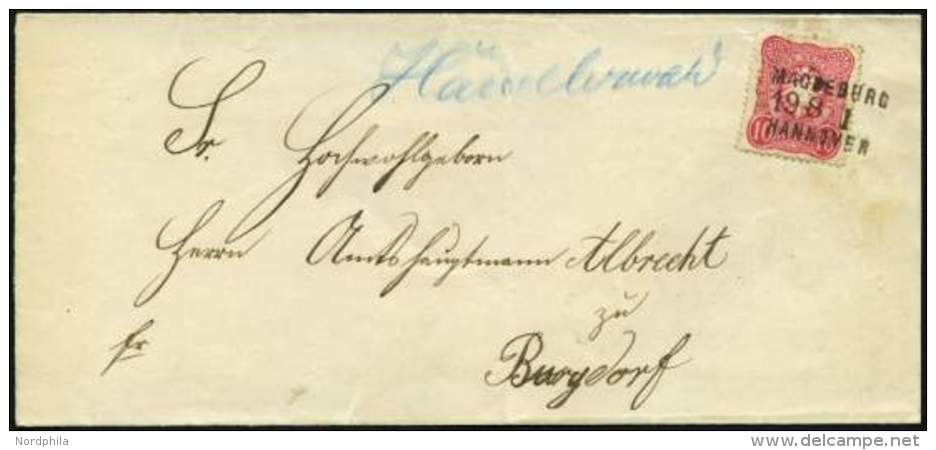 Hämelerwald
MAGDEBURG
19 8 I
HANNOVER
Sr. Hochwohlgeborn
Herrn Amtshauptmann Albrecht
zu
fr Burgdorf
Nordphila
www.delcampe.net